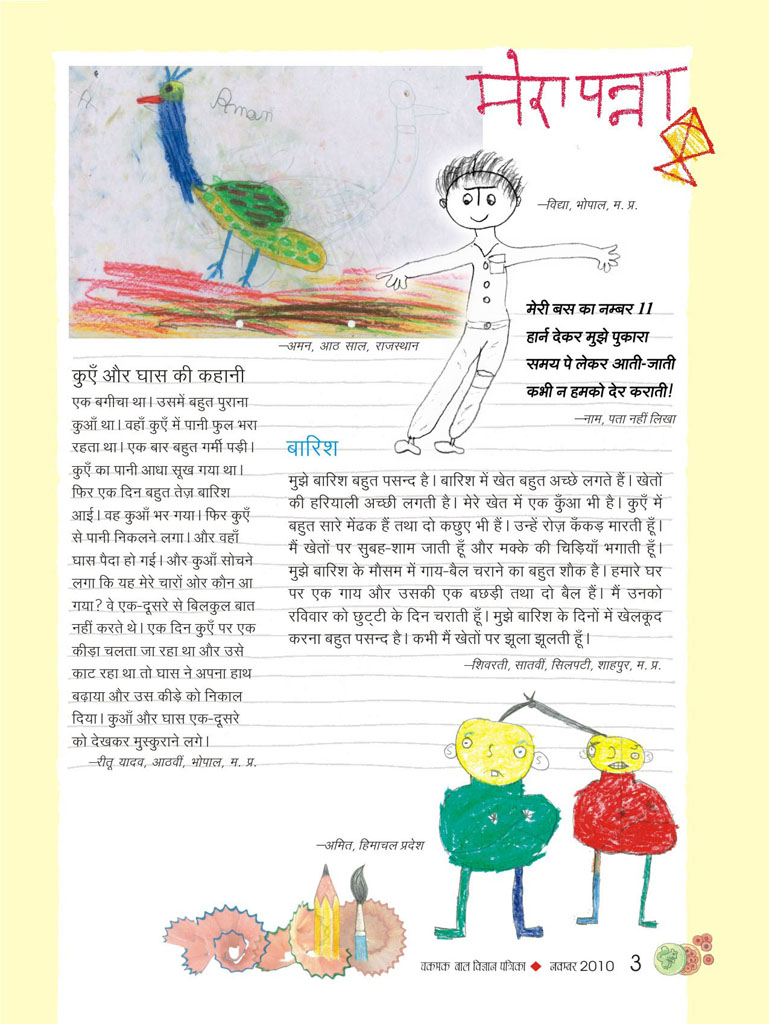 मेरा पन्ना
Aman
—विद्या, भोपाल, म. प्र.
मेरी बस का नम्बर 11
हार्न देकर मुझे पुकारा
समय पे लेकर आती-जाती
कभी न हमको देर कराती!
—नाम, पता नहीं लिखा
—अमन, आठ साल, राजस्थान
कुएँ और घास की कहानी
एक बगीचा था। उसमें बहुत पुराना
कुआँ था। वहाँ कुएँ में पानी फुल भरा
रहता था। एक बार बहुत गर्मी पड़ी।
कुएँ का पानी आधा सूख गया था।
फिर एक दिन बहुत तेज़ बारिश
आई। वह कुआँ भर गया। फिर कुएँ
से पानी निकलने लगा। और वहाँ
घास पैदा हो गई। और कुआँ सोचने
लगा कि यह मेरे चारों ओर कौन आ
गया? वे एक-दूसरे से बिलकुल बात
नहीं करते थे। एक दिन कुएँ पर एक
कीड़ा चलता जा रहा था और उसे
काट रहा था तो घास ने अपना हाथ
बढ़ाया और उस कीड़े को निकाल
दिया। कुआँ और घास एक-दूसरे
को देखकर मुस्कुराने लगे।
—रीतू यादव, आठवीं, भोपाल, म. प्र.
बारिश
मुझे बारिश बहुत पसन्द है। बारिश में खेत बहुत अच्छे लगते हैं। खेतों
की हरियाली अच्छी लगती है। मेरे खेत में एक कुँआ भी है। कुएँ में
बहुत सारे मेंढक हैं तथा दो कछुए भी हैं। उन्हें रोज़ कँकड़ मारती हूँ।
मैं खेतों पर सुबह-शाम जाती हूँ और मक्के की चिड़ियाँ भगाती हूँ।
मुझे बारिश के मौसम में गाय-बैल चराने का बहुत शौक है। हमारे घर
पर एक गाय और उसकी एक बछड़ी तथा दो बैल हैं। मैं उनको
रविवार को छुट्टी के दिन चराती हूँ। मुझे बारिश के दिनों में खेलकूद
करना बहुत पसन्द है। कभी मैं खेतों पर झूला झूलती हूँ।
—शिवरती, सातवीं, सिलपटी, शाहपुर, म. प्र.
—अमित, हिमाचल प्रदेश
चकमक बाल विज्ञान पत्रिका ◆ नवम्बर 2010 3